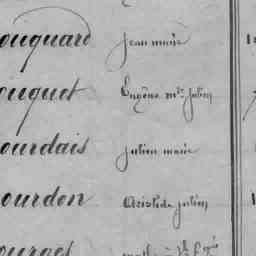 ouquard Jean marie
ouquet Eugène mie Julien
ourdais Julien marie
ourdon Aristide Julien
ourges